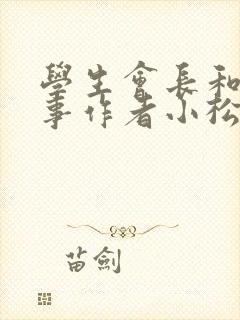 學生會長和
事作者小松
苗劍